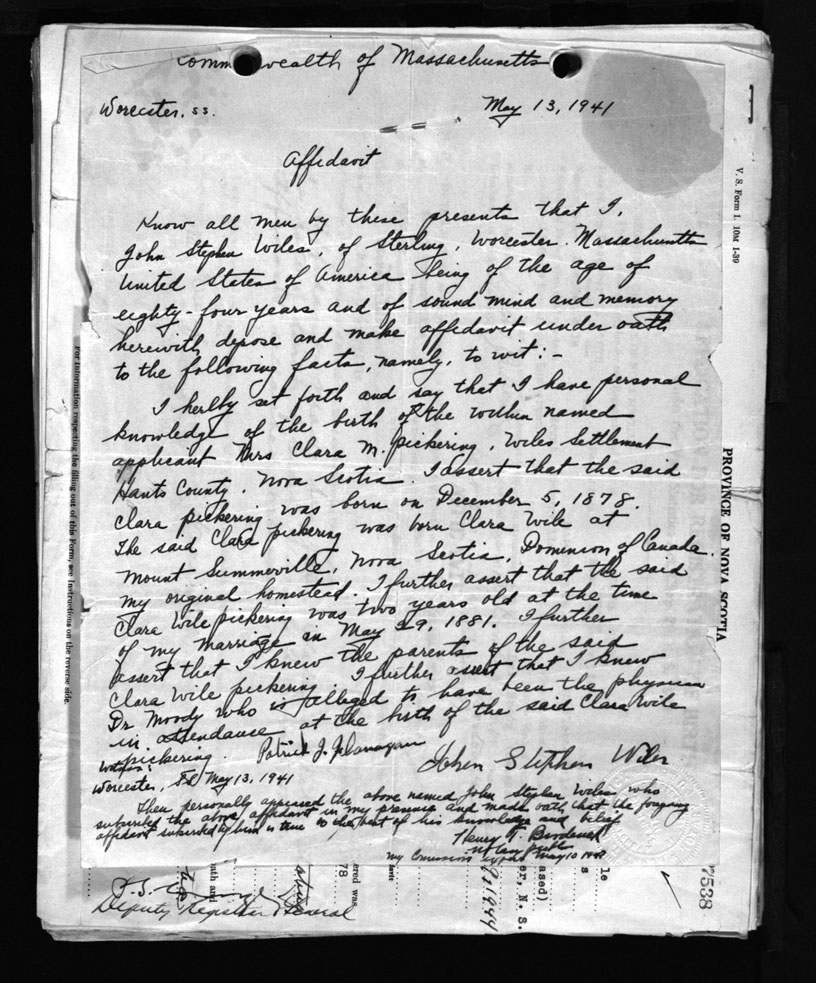 Commonwealth of Massachusetts
Worcester, ss. May 13, 1941
Affidavit
Know all men by these presents that I,
John Stephen Wiles, of Sterling, Worcester. Massachusetts
United States of America being of the age of
eighty-four years and of sound mind and memory
herewith depose and make affidavit under oath
to the following facts, namely, to wit:-
I herlby set forth and say that I have personal
knowledge of the birth of the within named
applicant Mrs Clara M. Pickering, Wiles Settlement
Hants County. Nova Scotia. I assert that the said
Clara Pickering was born on December 5, 1878.
The said Clara Pickering was born Clara Wile at
Mount Summerville, Nova Scotia, Dominion of Canada.
my original homestead. I further assert that the said
Clara Wile Pickering was two years old at the time
of my marriage in May 29, 1881. I further
assert that I knew the parents of the said
Clara Wile Pickering I further assert that I knew
Dr Moody who is alleged to have been the physician
in attendance at the birth of the said Clara Wile
Pickering. Patrick J. Flanagan
Witness: John Stephen Wiles
Worcester, SS. May 13, 1941
Then personally appeared the above named John Stephen Wiles who
subscribed the above affidavit in my presence and made oath that the forgoing
affidavit subscribed by him is true to the best of his knowledge and belief
Henry T. Broderick
Notary Public
My Commission expires May 10
Deputy Registrar General
V. S. Form 1. 10M 1-39
PROVINCE OF NOVA SCOTIA
For information respecting the filling out of this Form, see Instructions on the reverse side.
ered was
78
eath and
er, N. S.
ased)
le
7538